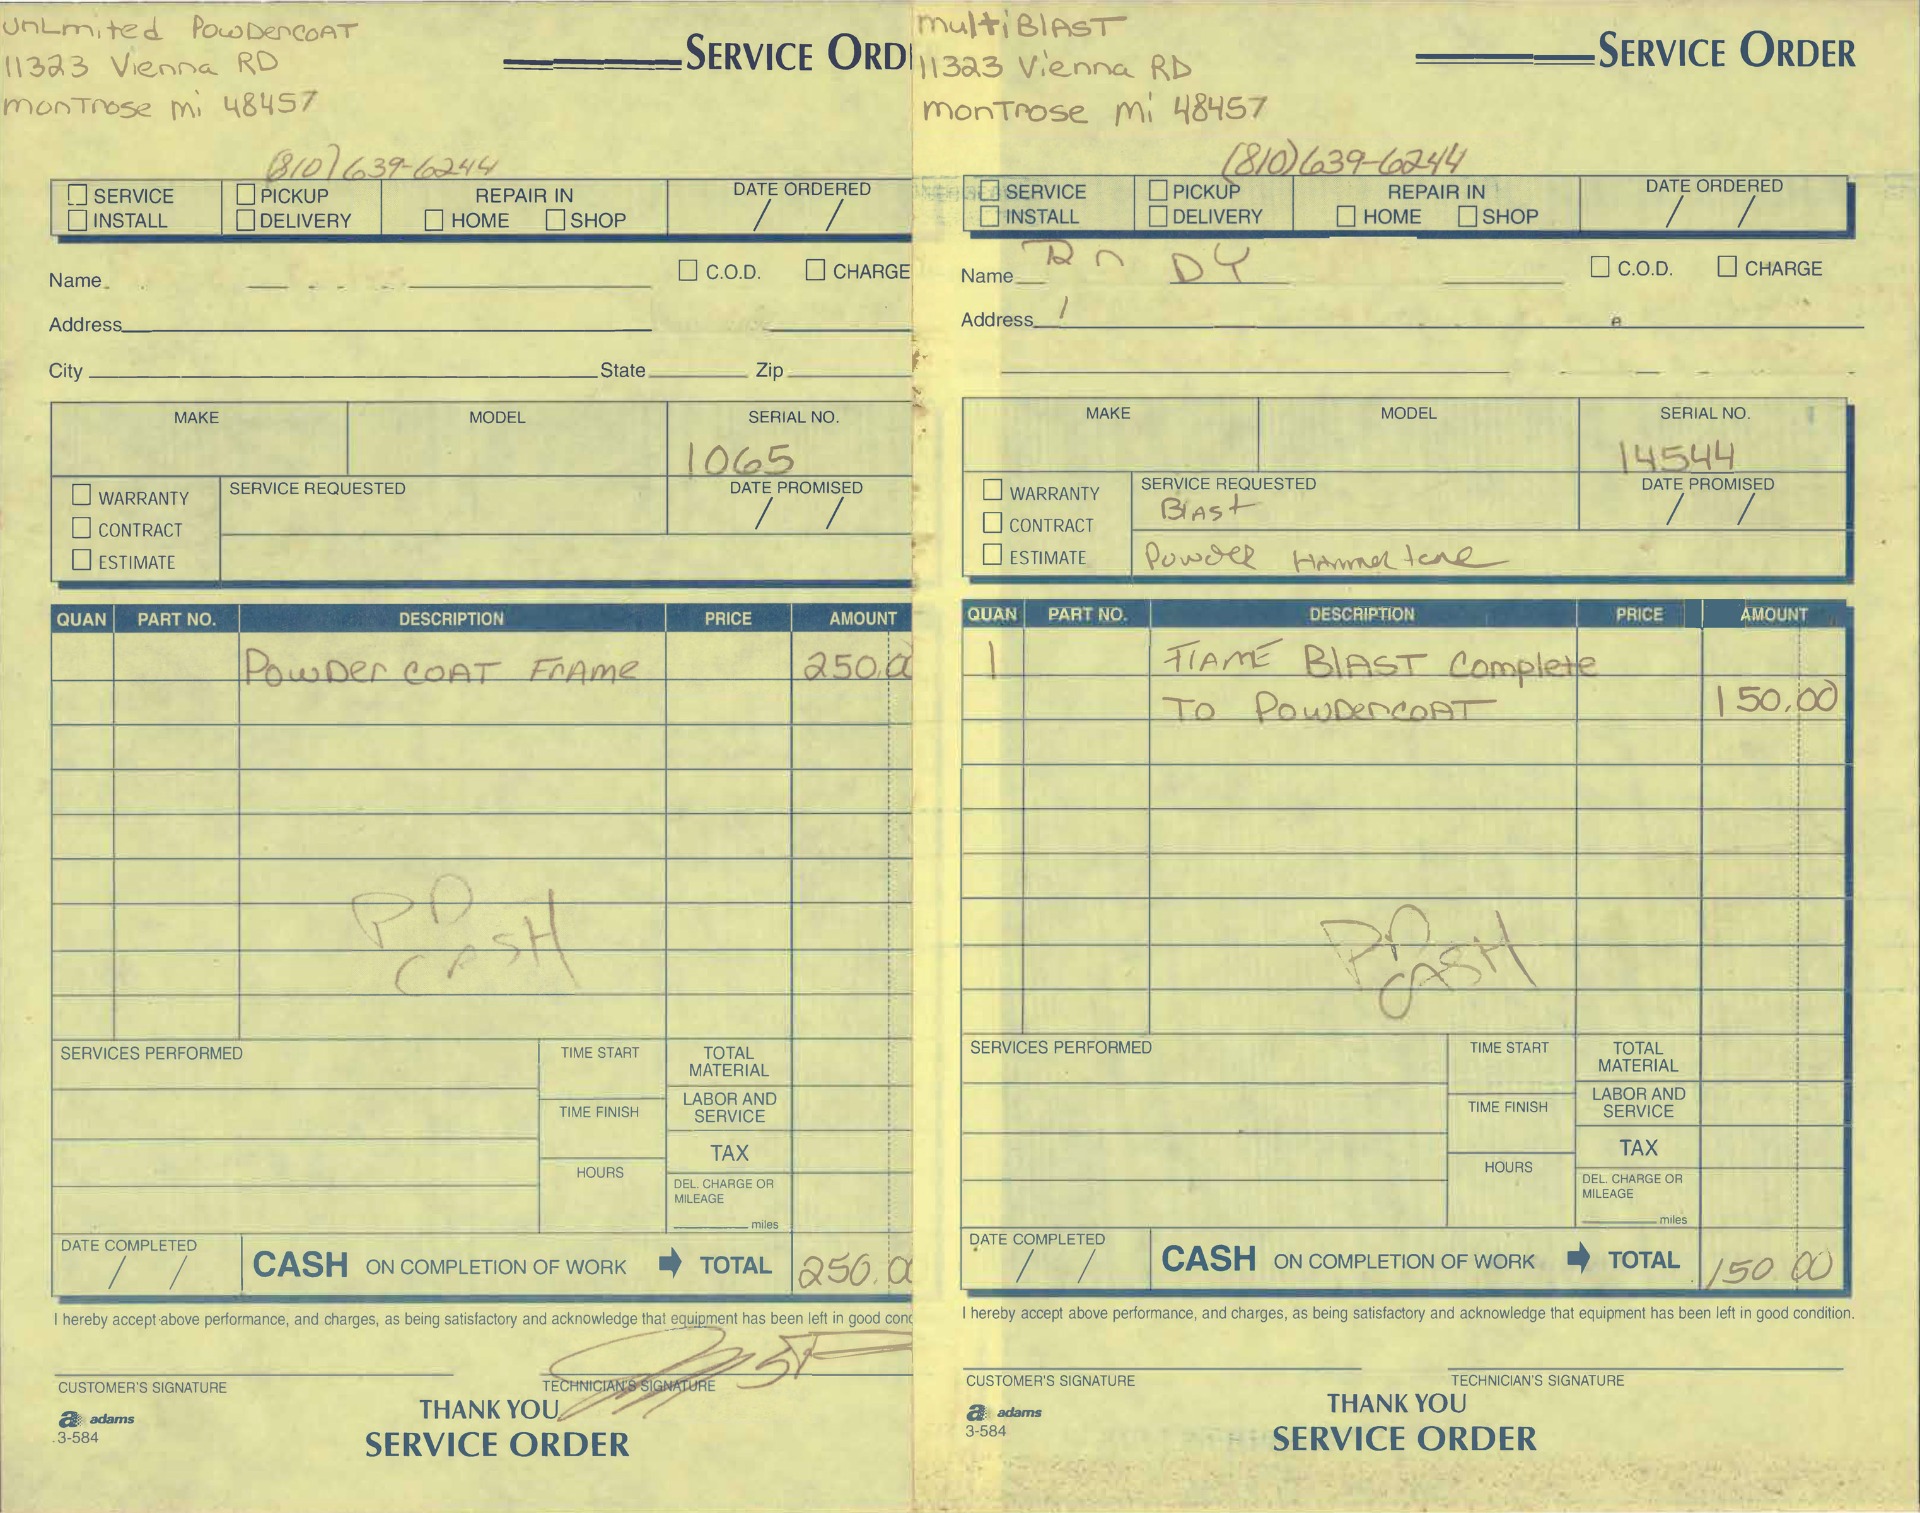 UnLmited PowDercoAT
11323 Vienna RD
monTrose mi 48457
SERVICE ORD
(810) 639-6244
SERVICE
INSTALL
PICKUP
DELIVERY
REPAIR IN
HOME SHOP
DATE ORDERED
/ /
Name
C.O.D. CHARGE
Address
City State Zip
MAKE MODEL SERIAL NO.
1065
WARRANTY
CONTRACT
ESTIMATE
SERVICE REQUESTED
DATE PROMISED
/ /
QUAN PART NO. DESCRIPTION PRICE AMOUNT
PowDer COAT FrAme 250.00
PD
CASH
SERVICES PERFORMED
TIME START
TIME FINISH
HOURS
TOTAL
MATERIAL
LABOR AND
SERVICE
TAX
DEL. CHARGE OR
MILEAGE
miles
DATE COMPLETED
/ /
CASH ON COMPLETION OF WORK TOTAL 250.00
I hereby accept above performance, and charges, as being satisfactory and acknowledge that equipment has been left in good cond
CUSTOMER'S SIGNATURE
TECHNICIAN'S SIGNATURE
a adams
3-584
THANK YOU
SERVICE ORDER
multiBlAST
11323 Vienna RD
monTrose mi 48457
SERVICE ORDER
(810) 639-6244
SERVICE
INSTALL
PICKUP
DELIVERY
REPAIR IN
HOME SHOP
DATE ORDERED
/ /
Name DY
C.O.D. CHARGE
Address
MAKE MODEL SERIAL NO.
14544
WARRANTY
CONTRACT
ESTIMATE
SERVICE REQUESTED
BlAst
Powder Hammertone
DATE PROMISED
/ /
QUAN PART NO. DESCRIPTION PRICE AMOUNT
1 FrAME BlAST Complete
TO PowDercoAT 150.00
PD
CASH
SERVICES PERFORMED
TIME START
TIME FINISH
HOURS
TOTAL
MATERIAL
LABOR AND
SERVICE
TAX
DEL. CHARGE OR
MILEAGE
miles
DATE COMPLETED
/ /
CASH ON COMPLETION OF WORK TOTAL 150 00
I hereby accept above performance, and charges, as being satisfactory and acknowledge that equipment has been left in good condition.
CUSTOMER'S SIGNATURE
TECHNICIAN'S SIGNATURE
a adams
3-584
THANK YOU
SERVICE ORDER